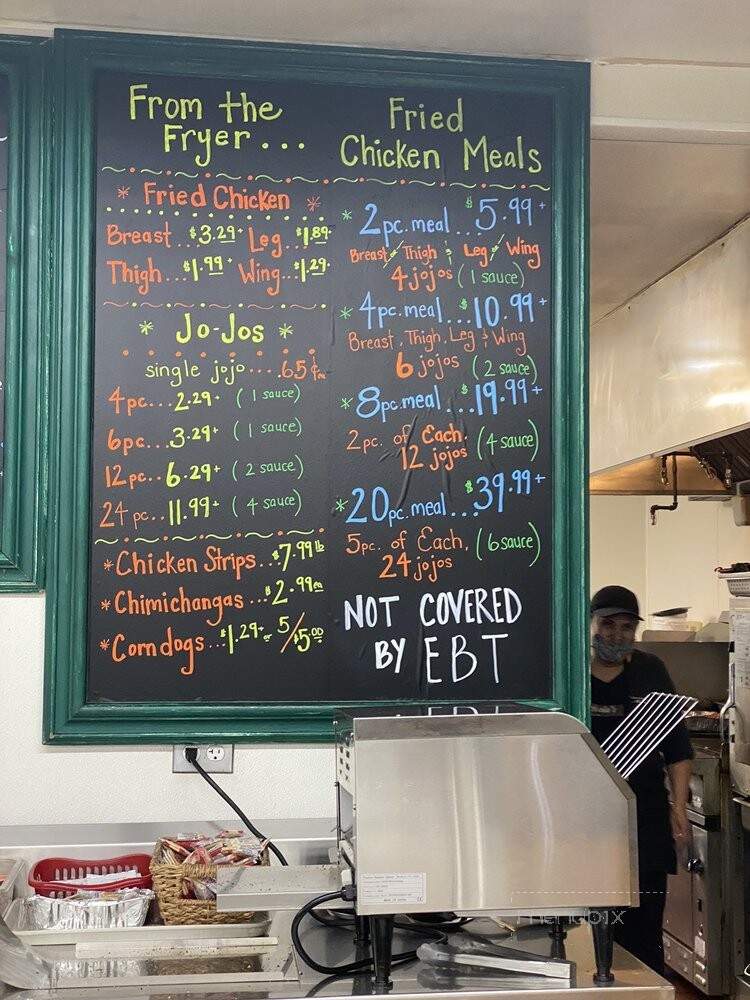 From the
Fryer...
* Fried Chicken *
Breast...$3.29+ Leg...$1.89+
Thigh...$1.99+ Wing...$1.29+
* Jo-Jos *
single jojo....65¢
4pc...2.29+ (1 sauce)
6pc...3.29+ (1 sauce)
12pc..6.29+ (2 sauce)
24pc..11.99+ (4 sauce)
*Chicken Strips...$7.99 lb
*Chimichangas...$2.99 ea
*Corndogs...$1.29+ or 5/$5.00
Fried
Chicken Meals
* 2pc.meal...$5.99+
Breast & Thigh & Leg & Wing
4 jojos (1 sauce)
*4pc.meal...$10.99+
Breast, Thigh, Leg & Wing
6 jojos (2 sauce)
*8pc.meal...$19.99+
2pc. of Each. (4 sauce)
12 jojos
*20pc.meal...$39.99+
5pc. of Each, (6 sauce)
24 jojos
NOT COVERED
BY EBT
menupix